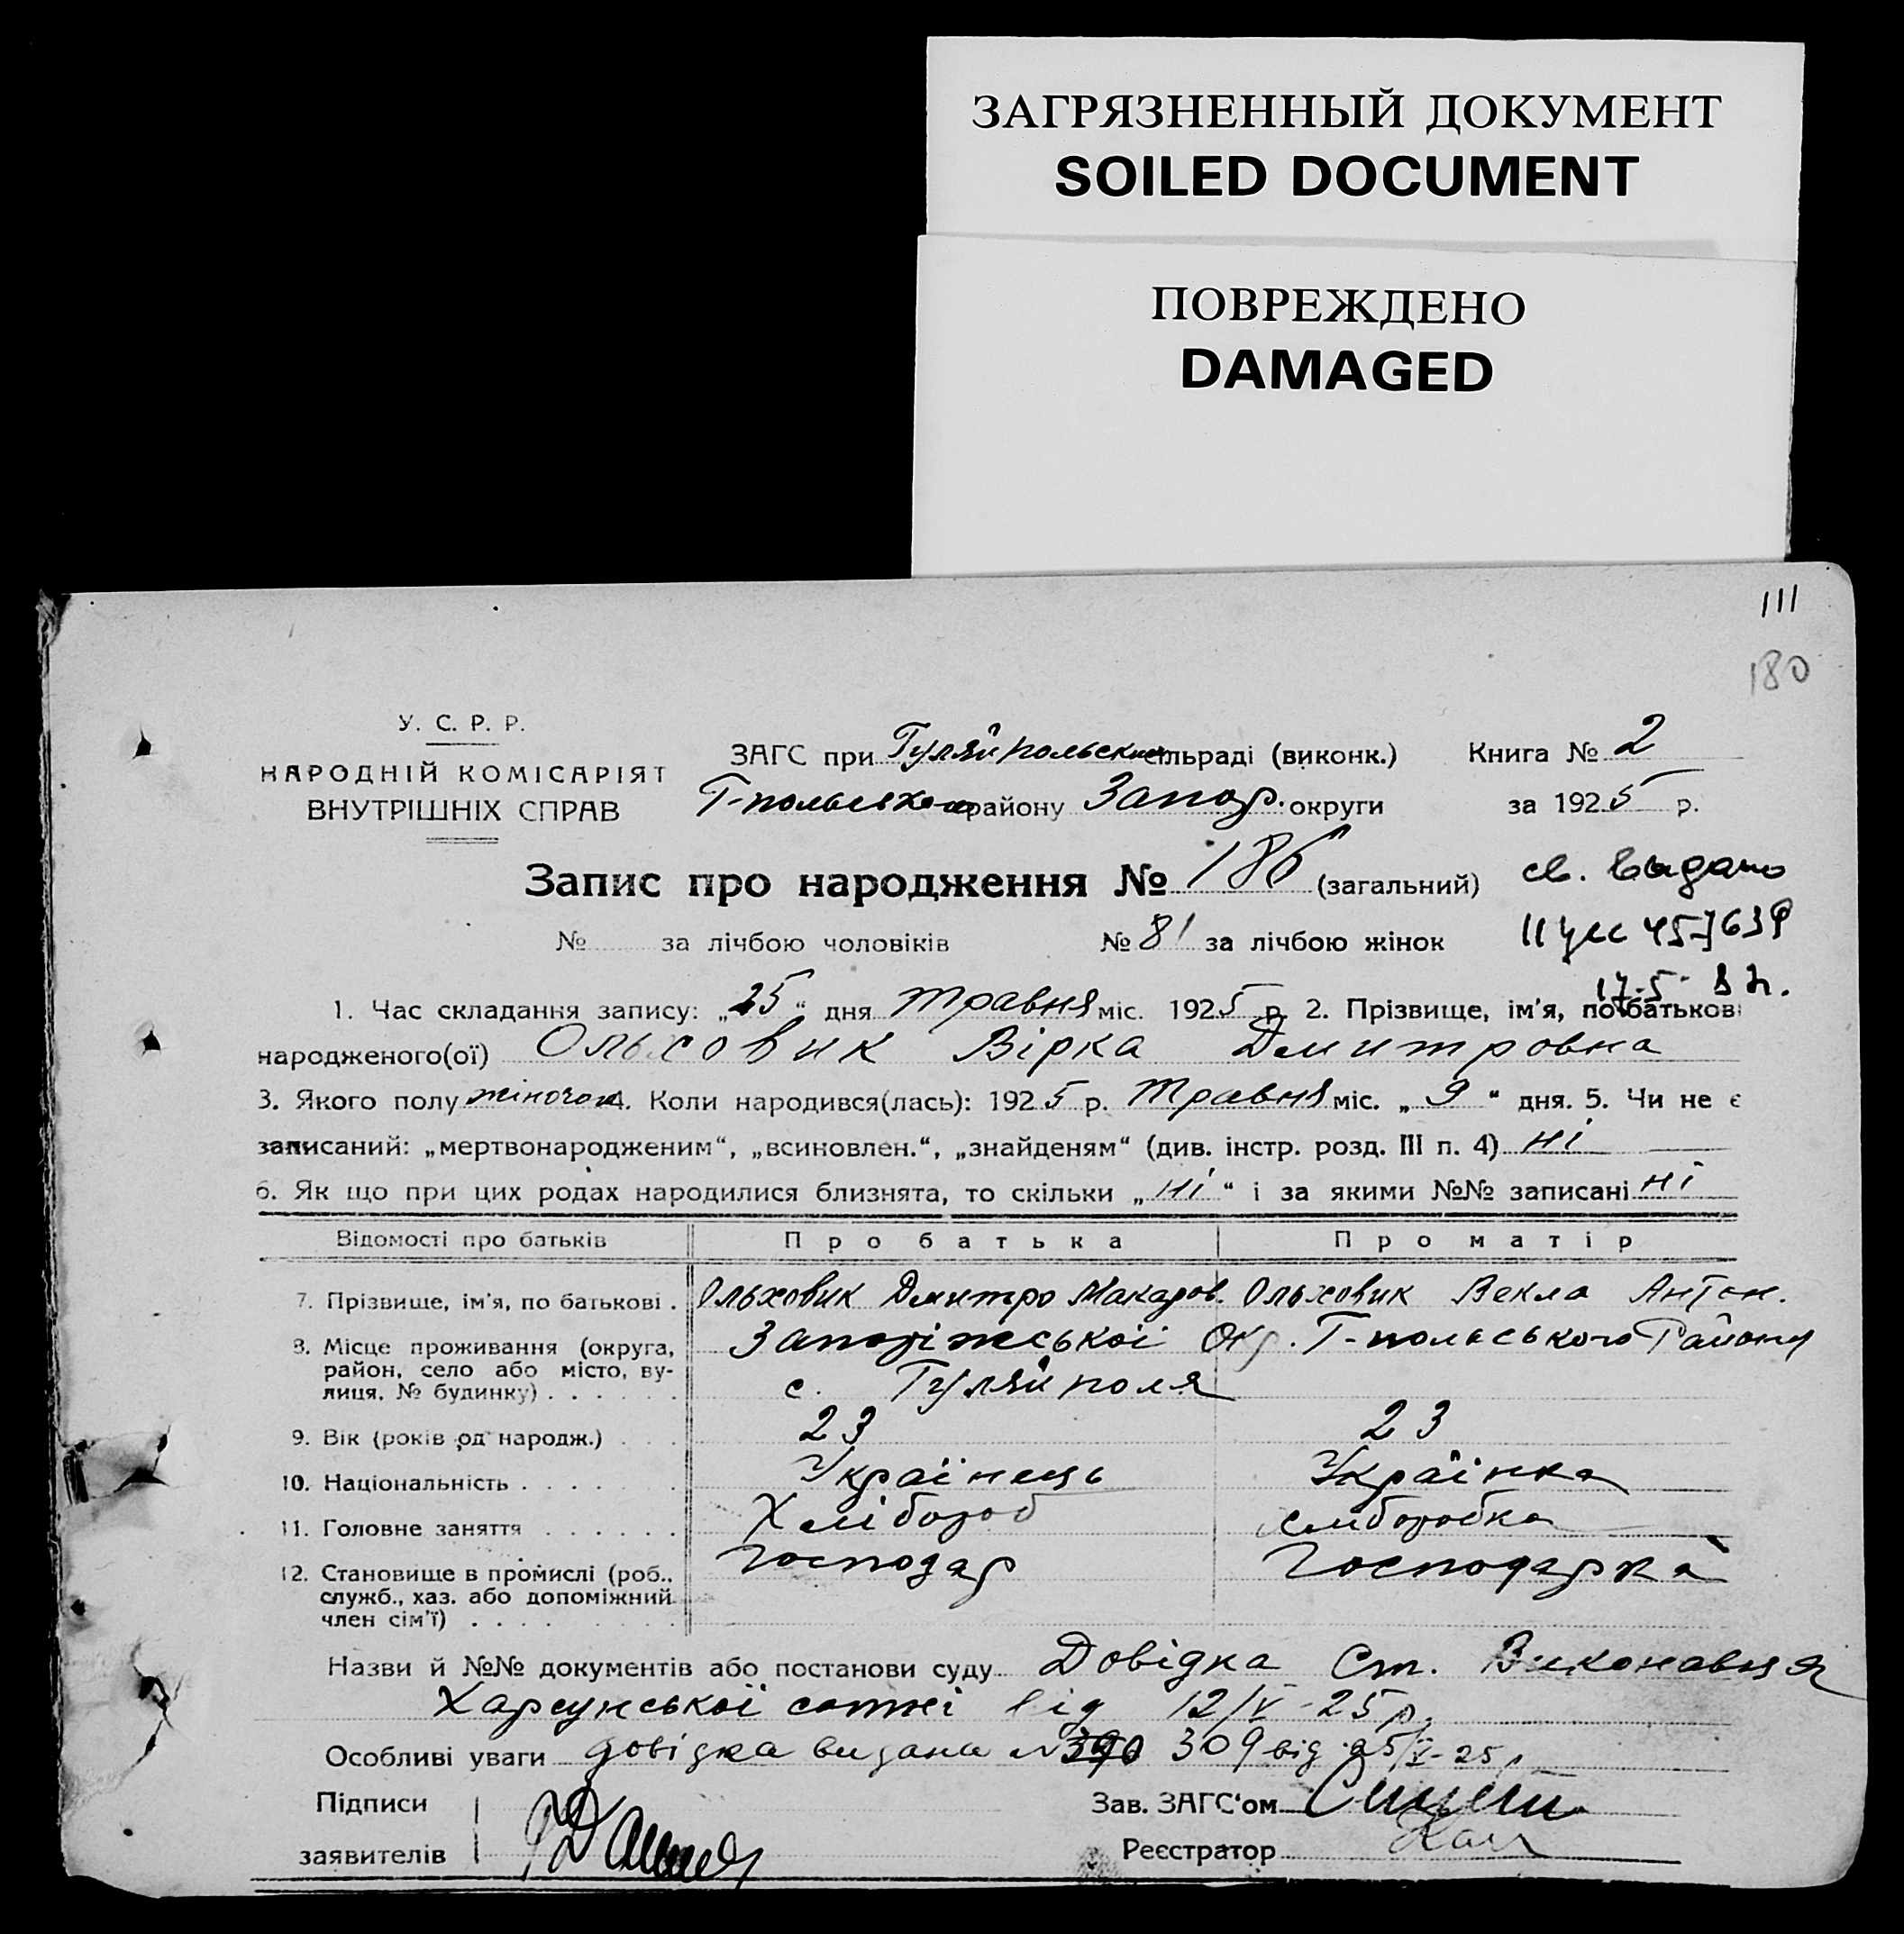 ЗАГРЯЗНЕННЫЙ ДОКУМЕНТ
SOILED DOCUMENT
ПОВРЕЖДЕНО
DAMAGED
111
180
У. С. Р. Р.
НАРОДНІЙ КОМІСАРІЯТ
ВНУТРІШНІХ СПРАВ
ЗАГС при Гуляйпольск сільраді (виконк.) Книга № 2
Г-польськ району Запор. округи за 1925 р.
Запис про народження № 186 (загальний) св. выдано
№ за лічбою чоловіків № 81 за лічбою жінок
17.5
1. Час складання запису: „25“ дня травня міс. 1925 р. 2. Прізвище, ім'я, по батькові
народженого(ої) Ольховик Вірка Дмитровна
3. Якого полу жіночої 4. Коли народився(лась): 1925 р. Травня міс. „9“ дня. 5. Чи не є
записаний: „мертвонародженим“, „всиновлен.“, „знайденям“ (див. інстр. розд. III п. 4) ні
6. Як що при цих родах народилися близнята, то скільки „ні“ і за якими №№ записані ні
Відомості про батьків Про батька Про матір
7. Прізвище, ім'я, по батькові . Ольховик Дмитро Макаров. Ольховик Векла Антон.
8. Місце проживання (округа, Запоріжської Окр. Г-польського Району
район, село або місто, ву-
лиця, № будинку) . . . . . . с. Гуляйполя
9. Вік (років од народж.) . . . 23 23
10. Національність . . . . . . . Українець Українка
11. Головне заняття . . . . . . Хлібороб хліборобка
12. Становище в промислі (роб., Господар Господарка
служб., хаз. або допоміжний
член сім'ї) . . . . . . . .
Назви й №№ документів або постанови суду Довідка Ст. Виконавця
Харсунської сотні від 12/V-25 р.
Особливі уваги довідка видана № 309 від 25/V-25 р
Підписи Зав. ЗАГС'ом
заявителів Реєстратор